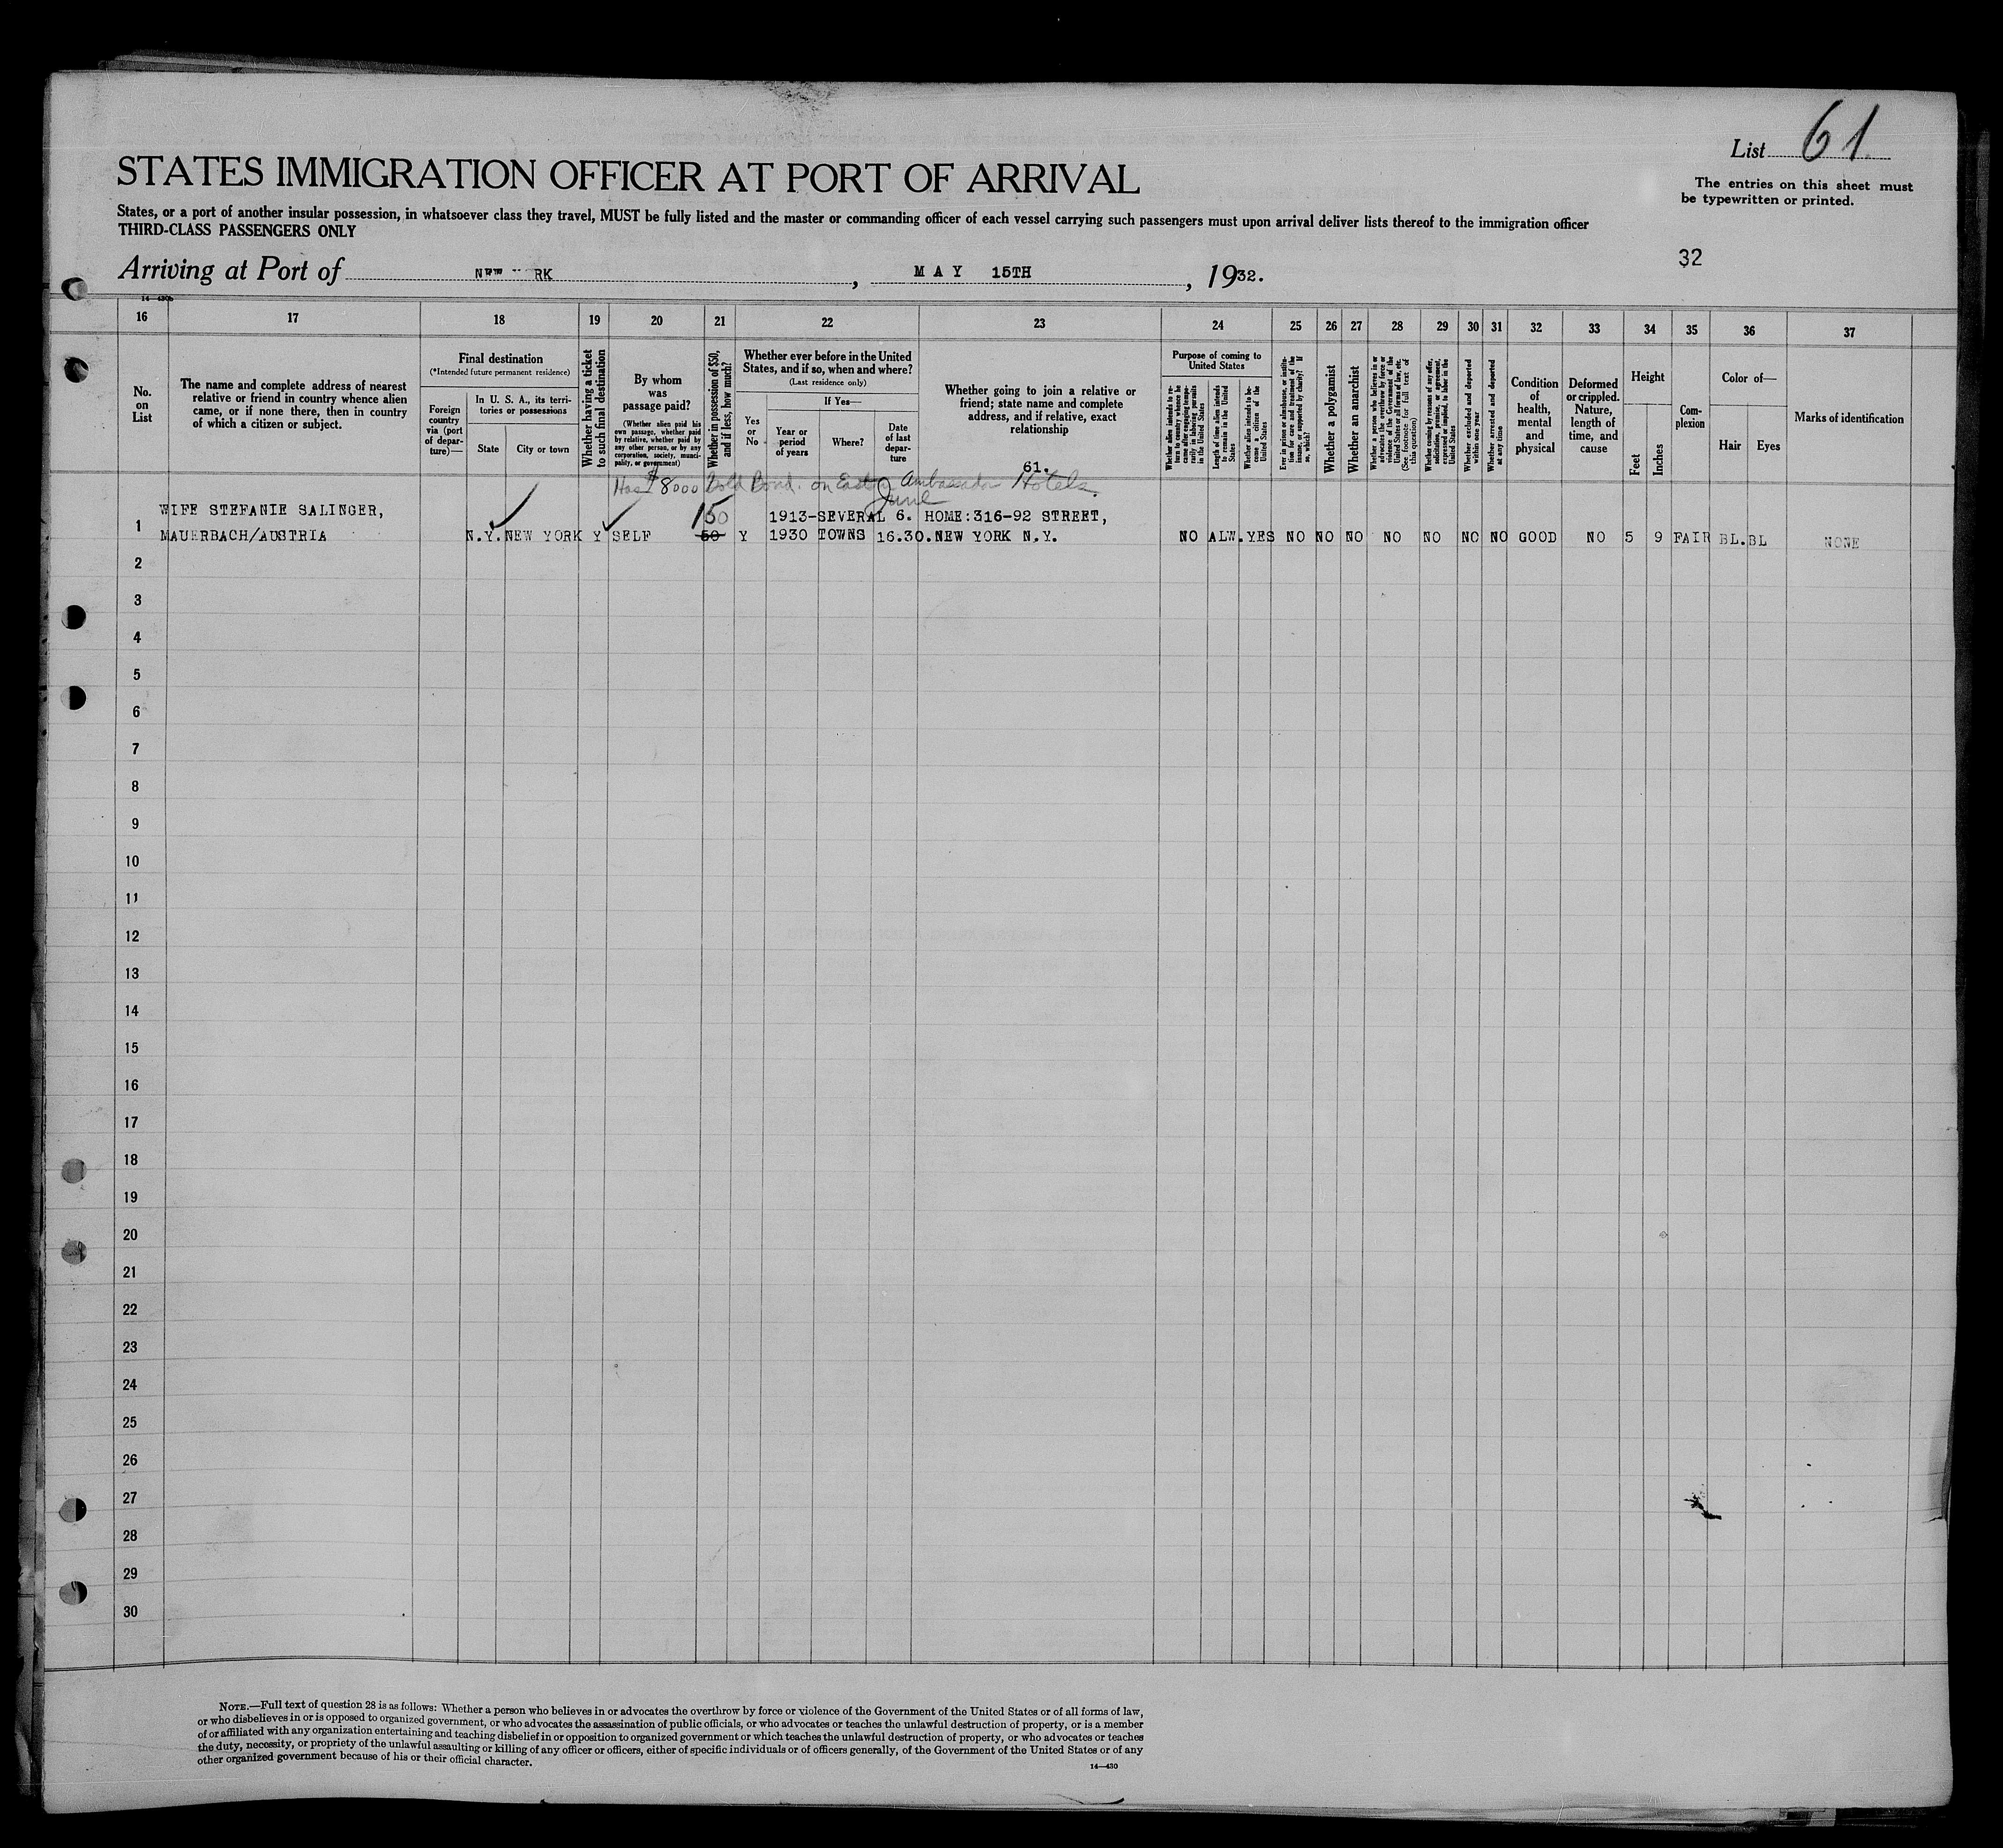 List 61
STATES IMMIGRATION OFFICER AT PORT OF ARRIVAL
The entries on this sheet must
be typewritten or printed.
States, or a port of another insular possession, in whatsoever class they travel, MUST be fully listed and the master or commanding officer of each vessel carrying such passengers must upon arrival deliver lists thereof to the immigration officer
THIRD-CLASS PASSENGERS ONLY
32
Arriving at Port of NEW RK, MAY 15TH, 1932.
14—430b
16 17 18 19 20 21 22 23 24 25 26 27 28 29 30 31 32 33 34 35 36 37
No.
on
List
The name and complete address of nearest
relative or friend in country whence alien
came, or if none there, then in country
of which a citizen or subject.
Final destination
(*Intended future permanent residence)
Foreign
country
via (port
of depar-
ture)—
In U. S. A., its terri-
tories or possessions
State
City or town
Whether having a ticket
to such final destination
By whom
was
passage paid?
(Whether alien paid his
own passage, whether paid
by relative, whether paid by
any other person, or by any
corporation, society, munici-
pality, or government)
Whether in possession of $50,
and if less, how much?
Whether ever before in the United
States, and if so, when and where?
(Last residence only)
Yes
or
No
If Yes—
Year or
period
of years
Where?
Date
of last
depar-
ture
Whether going to join a relative or
friend; state name and complete
address, and if relative, exact
relationship
61.
Purpose of coming to
United States
Whether alien intends to re-
turn to country whence he
came after engaging tempo-
rarily in laboring pursuits
in the United States
Length of time alien intends
to remain in the United
States
Whether alien intends to be-
come a citizen of the
United States
Ever in prison or almshouse, or institu-
tion for care and treatment of the
insane, or supported by charity? If
so, which?
Whether a polygamist
Whether an anarchist
Whether a person who believes in or
advocates the overthrow by force or
violence of the Government of the
United States or all forms of law, etc.
(See footnote for full text of
this question)
Whether coming by reasons of any offer,
solicitation, promise, or agreement,
expressed or implied, to labor in the
United States
Whether excluded and deported
within one year
Whether arrested and deported
at any time
Condition
of
health,
mental
and
physical
Deformed
or crippled.
Nature,
length of
time, and
cause
Height
Feet
Inches
Com-
plexion
Color of—
Hair
Eyes
Marks of identification
Has $8000 Gold Bond. on East Ambassador Hotels
June
WIFE STEFANIE SALINGER, 150 1913-SEVERAL 6. HOME:316-92 STREET,
1 MAUERBACH/AUSTRIA N.Y. NEW YORK Y SELF 50 Y 1930 TOWNS 16.30. NEW YORK N.Y. NO ALW. YES NO NO NO NO NO NO NO GOOD NO 5 9 FAIR BL. BL NONE
2
3
4
5
6
7
8
9
10
11
12
13
14
15
16
17
18
19
20
21
22
23
24
25
26
27
28
29
30
NOTE.—Full text of question 28 is as follows: Whether a person who believes in or advocates the overthrow by force or violence of the Government of the United States or of all forms of law,
or who disbelieves in or is opposed to organized government, or who advocates the assassination of public officials, or who advocates or teaches the unlawful destruction of property, or is a member
of or affiliated with any organization entertaining and teaching disbelief in or opposition to organized government or which teaches the unlawful destruction of property, or who advocates or teaches
the duty, necessity, or propriety of the unlawful assaulting or killing of any officer or officers, either of specific individuals or of officers generally, of the Government of the United States or of any
other organized government because of his or their official character.
14—430